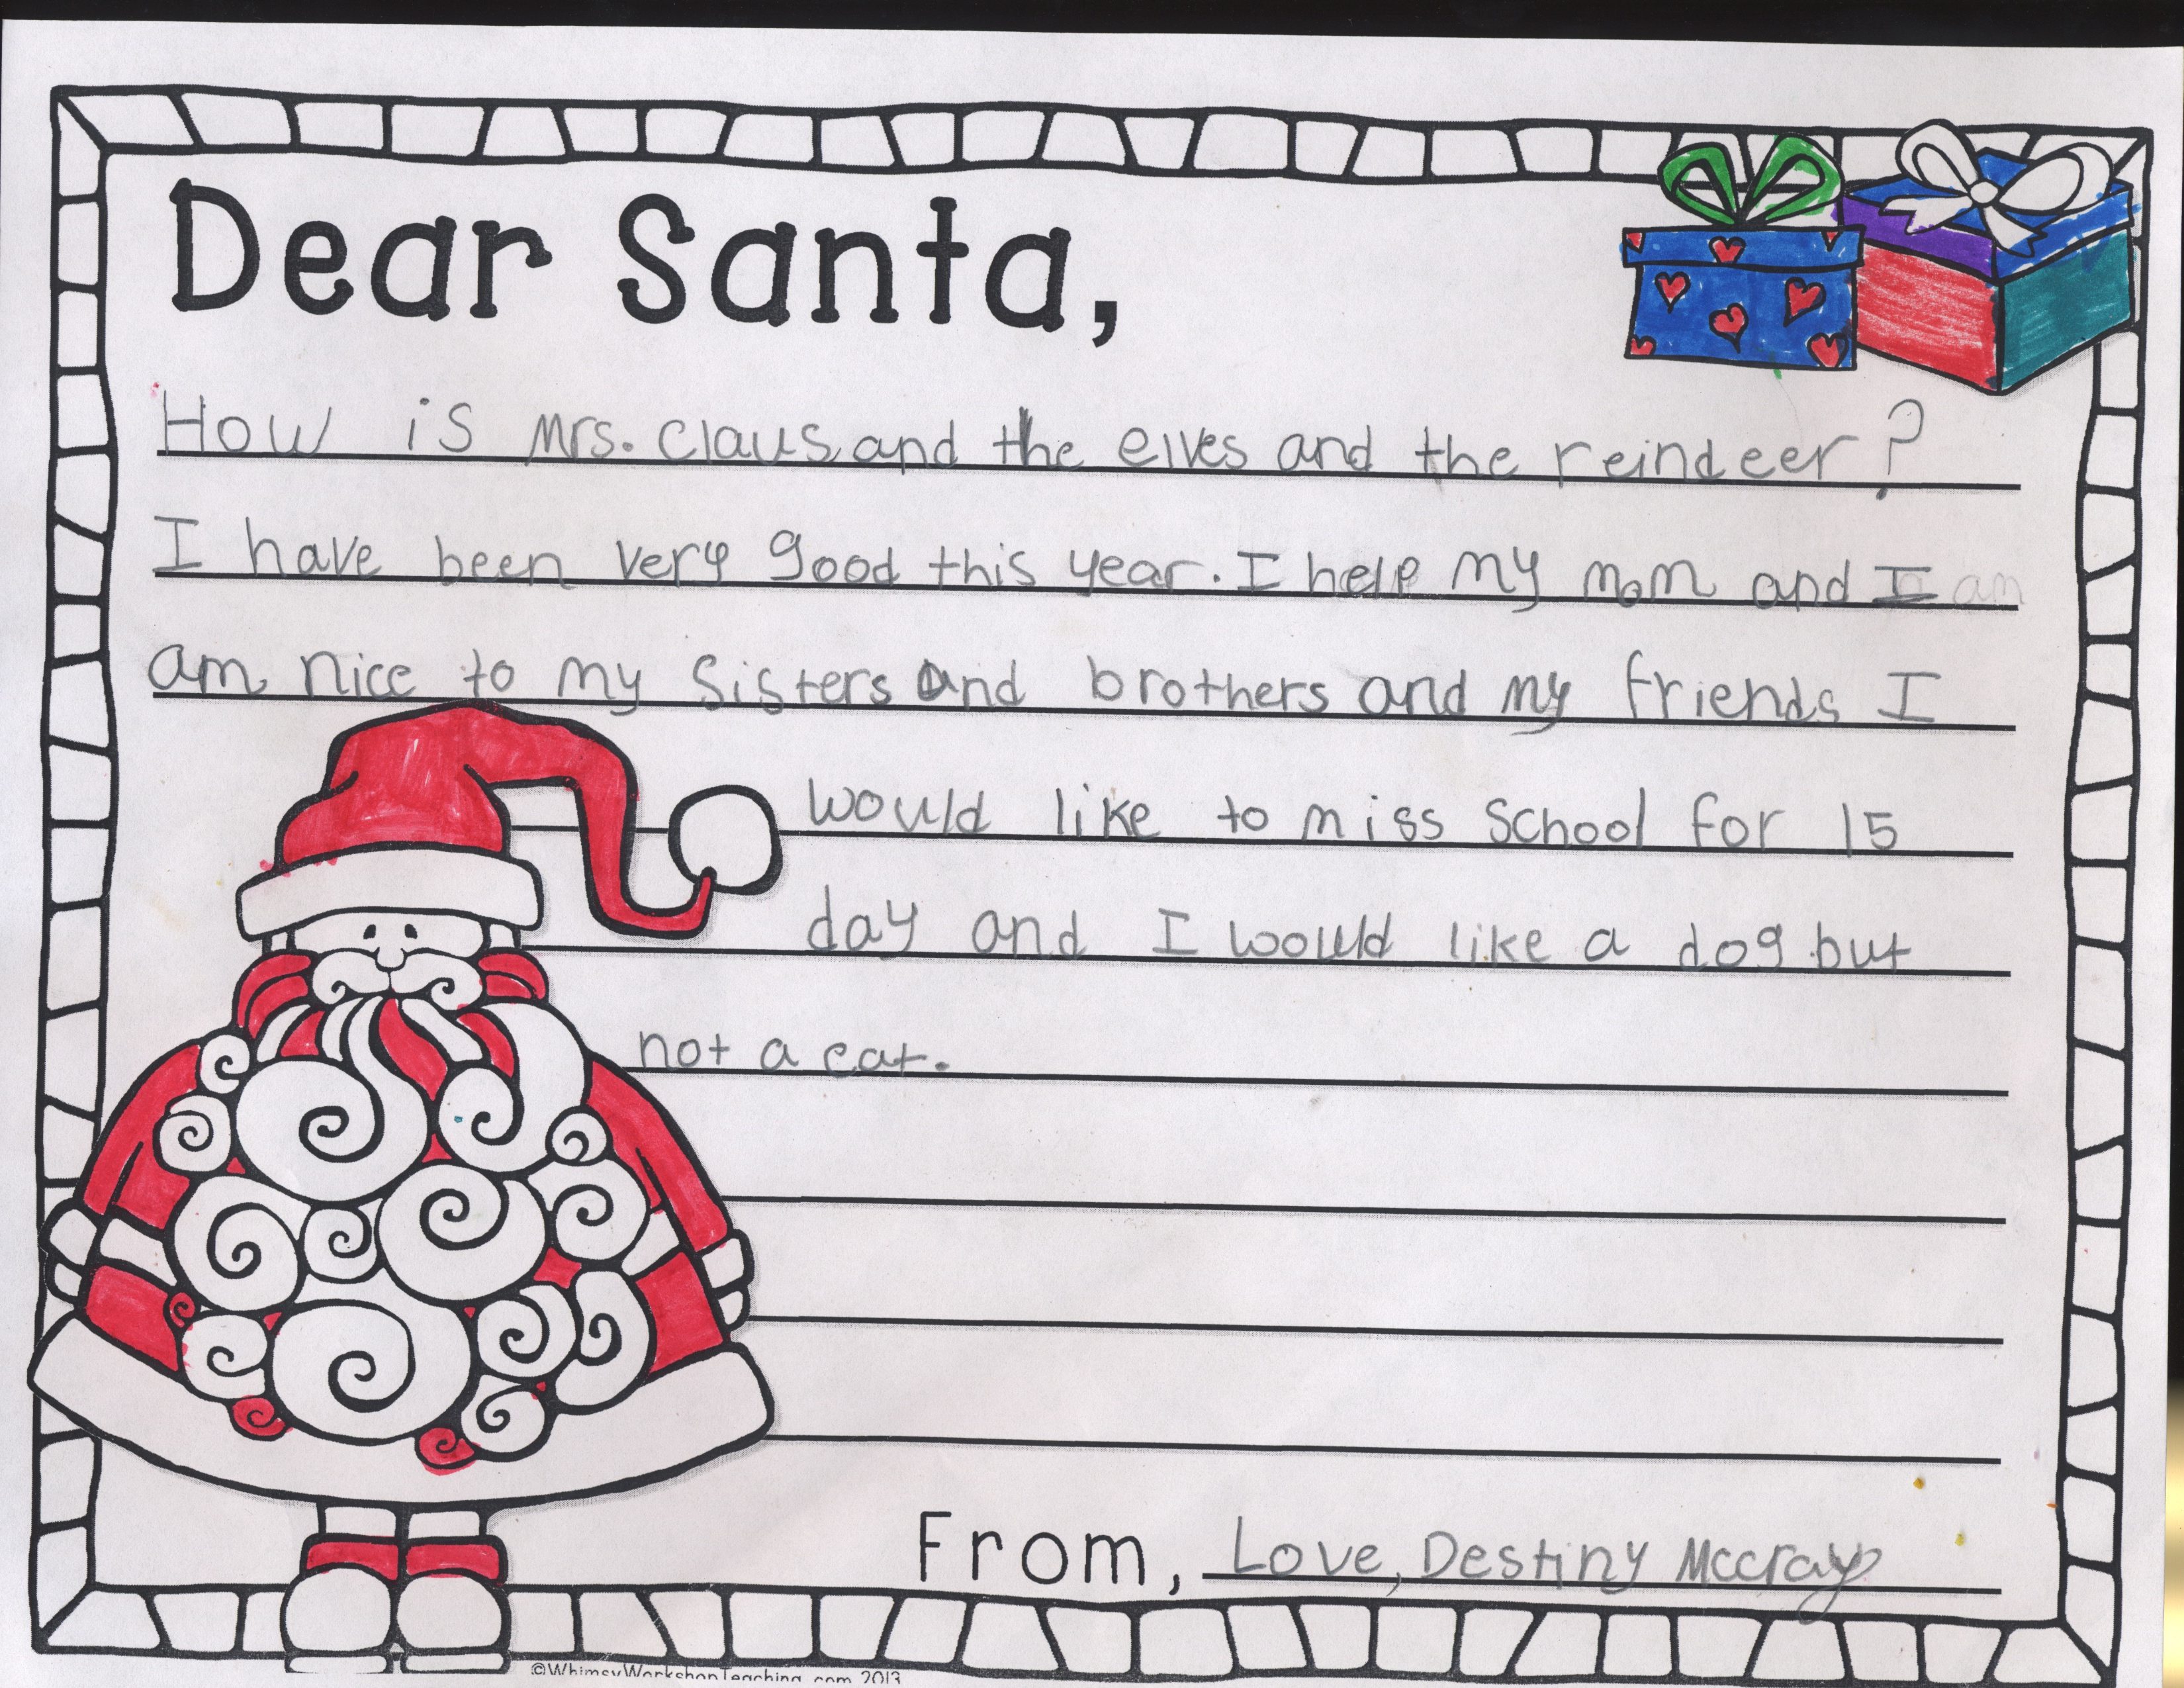 Dear Santa,
How is Mrs. Claus and the elves and the reindeer?
I have been very good this year. I help my mom and I am
am nice to my sisters and brothers and my friends I
would like to miss school for 15
day and I would like a dog but
not a cat.
From, Love, Destiny Mccray
©WhimsyWorkshopTeaching.com 2013